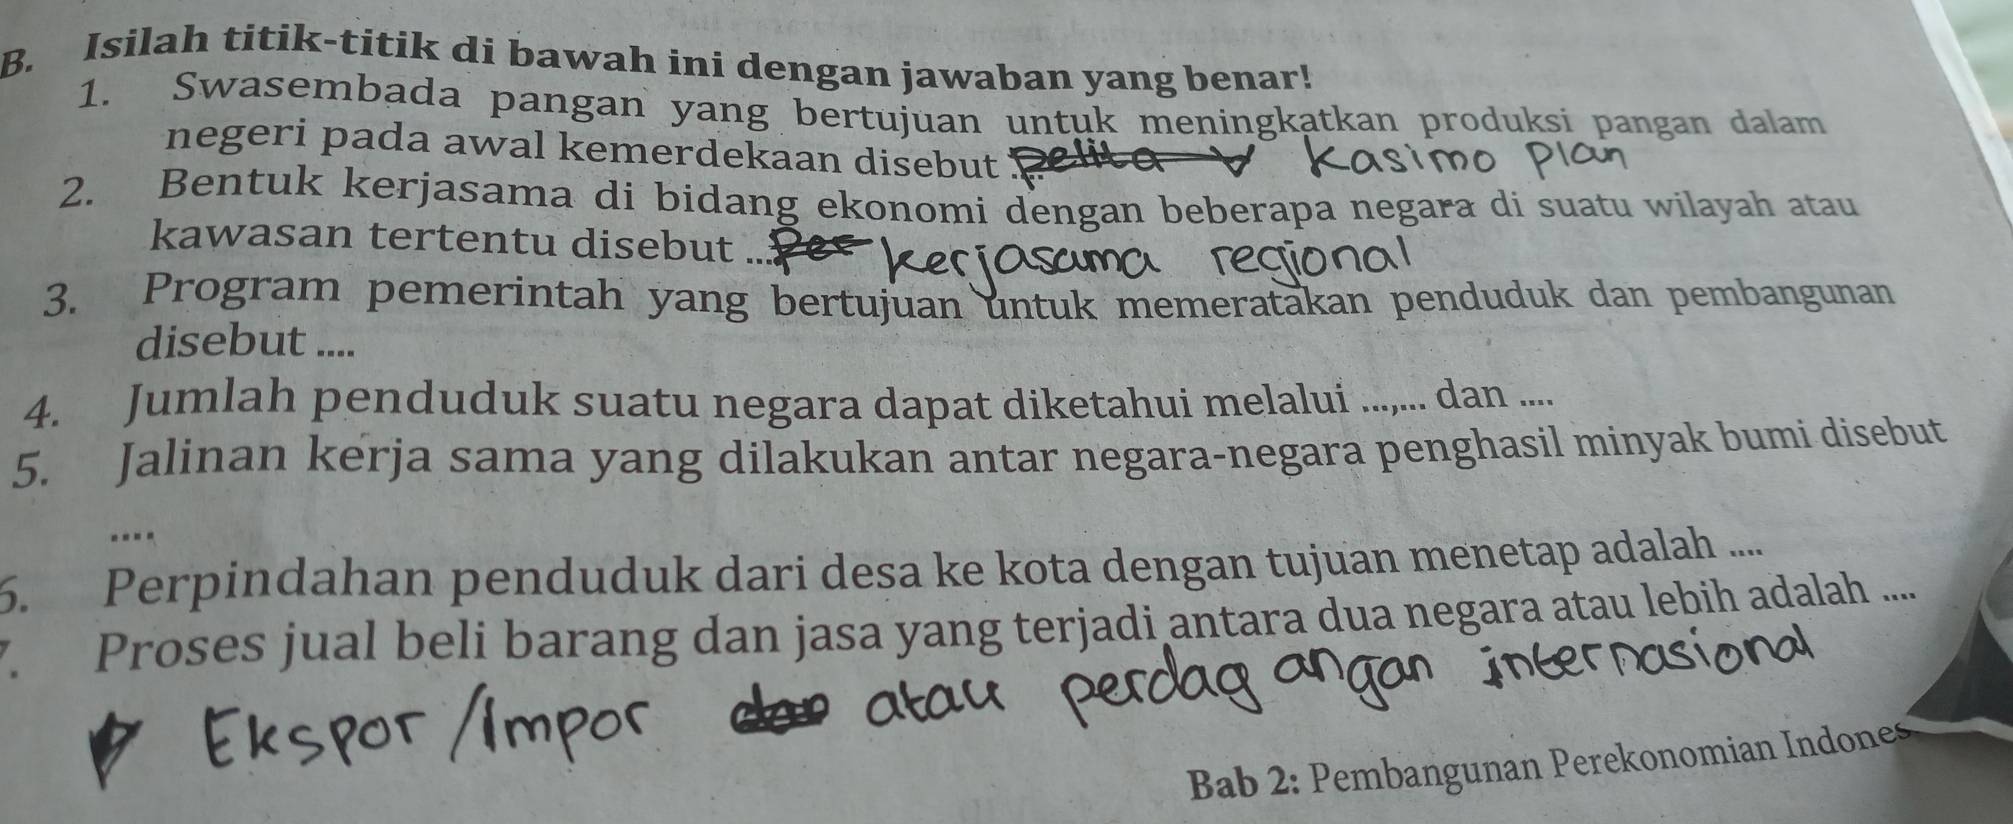 B. Isilah titik-titik di bawah ini dengan jawaban yang benar!
1. Swasembada pangan yang bertujuan untuk meningkatkan produksi pangan dalam
negeri pada awal kemerdekaan disebut .... pelita Kasimo Plan
2. Bentuk kerjasama di bidang ekonomi dengan beberapa negara di suatu wilayah atau
kawasan tertentu disebut .... kerjasama regional
3. Program pemerintah yang bertujuan untuk memeratakan penduduk dan pembangunan
disebut ....
4. Jumlah penduduk suatu negara dapat diketahui melalui ...,... dan ....
5. Jalinan kerja sama yang dilakukan antar negara-negara penghasil minyak bumi disebut
....
6. Perpindahan penduduk dari desa ke kota dengan tujuan menetap adalah ....
7. Proses jual beli barang dan jasa yang terjadi antara dua negara atau lebih adalah ....
Ekspor/Impor dan atau perdagangan internasional
Bab 2: Pembangunan Perekonomian Indones